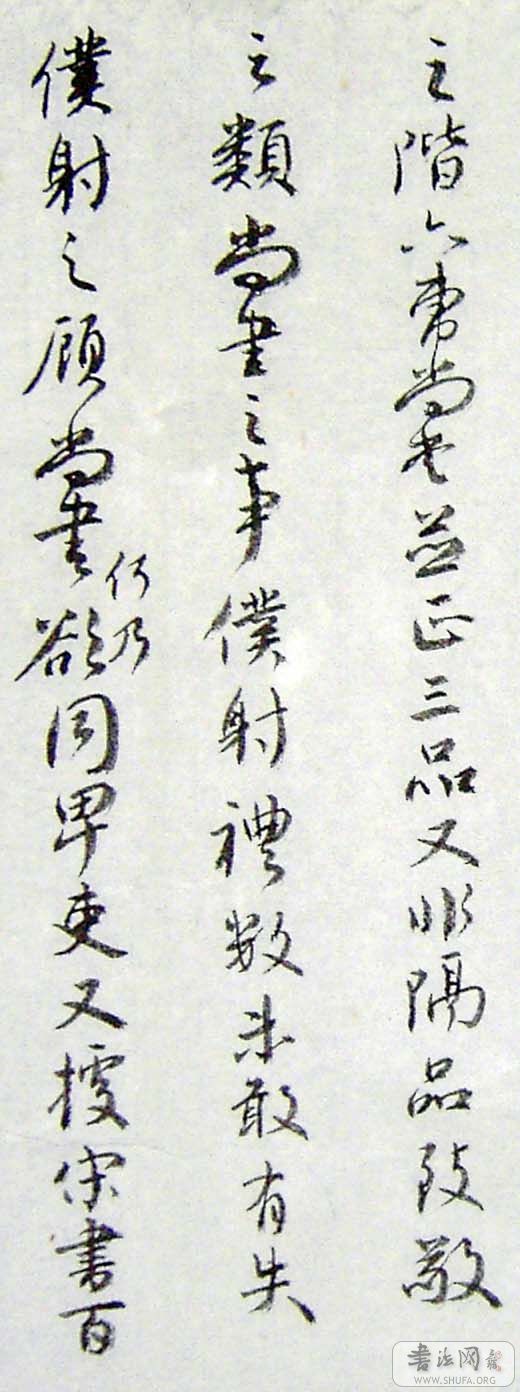 之階六曹尚書並正三品又非隔品致敬
之類尚書之事僕射禮數未敢有失
僕射之顧尚書何乃欲同卑吏又據宋書百
書法网
WWW.SHUFA.ORG